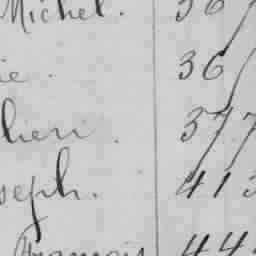 Michel. 36
ie. 36
heri. 377
seph. 413
François 44